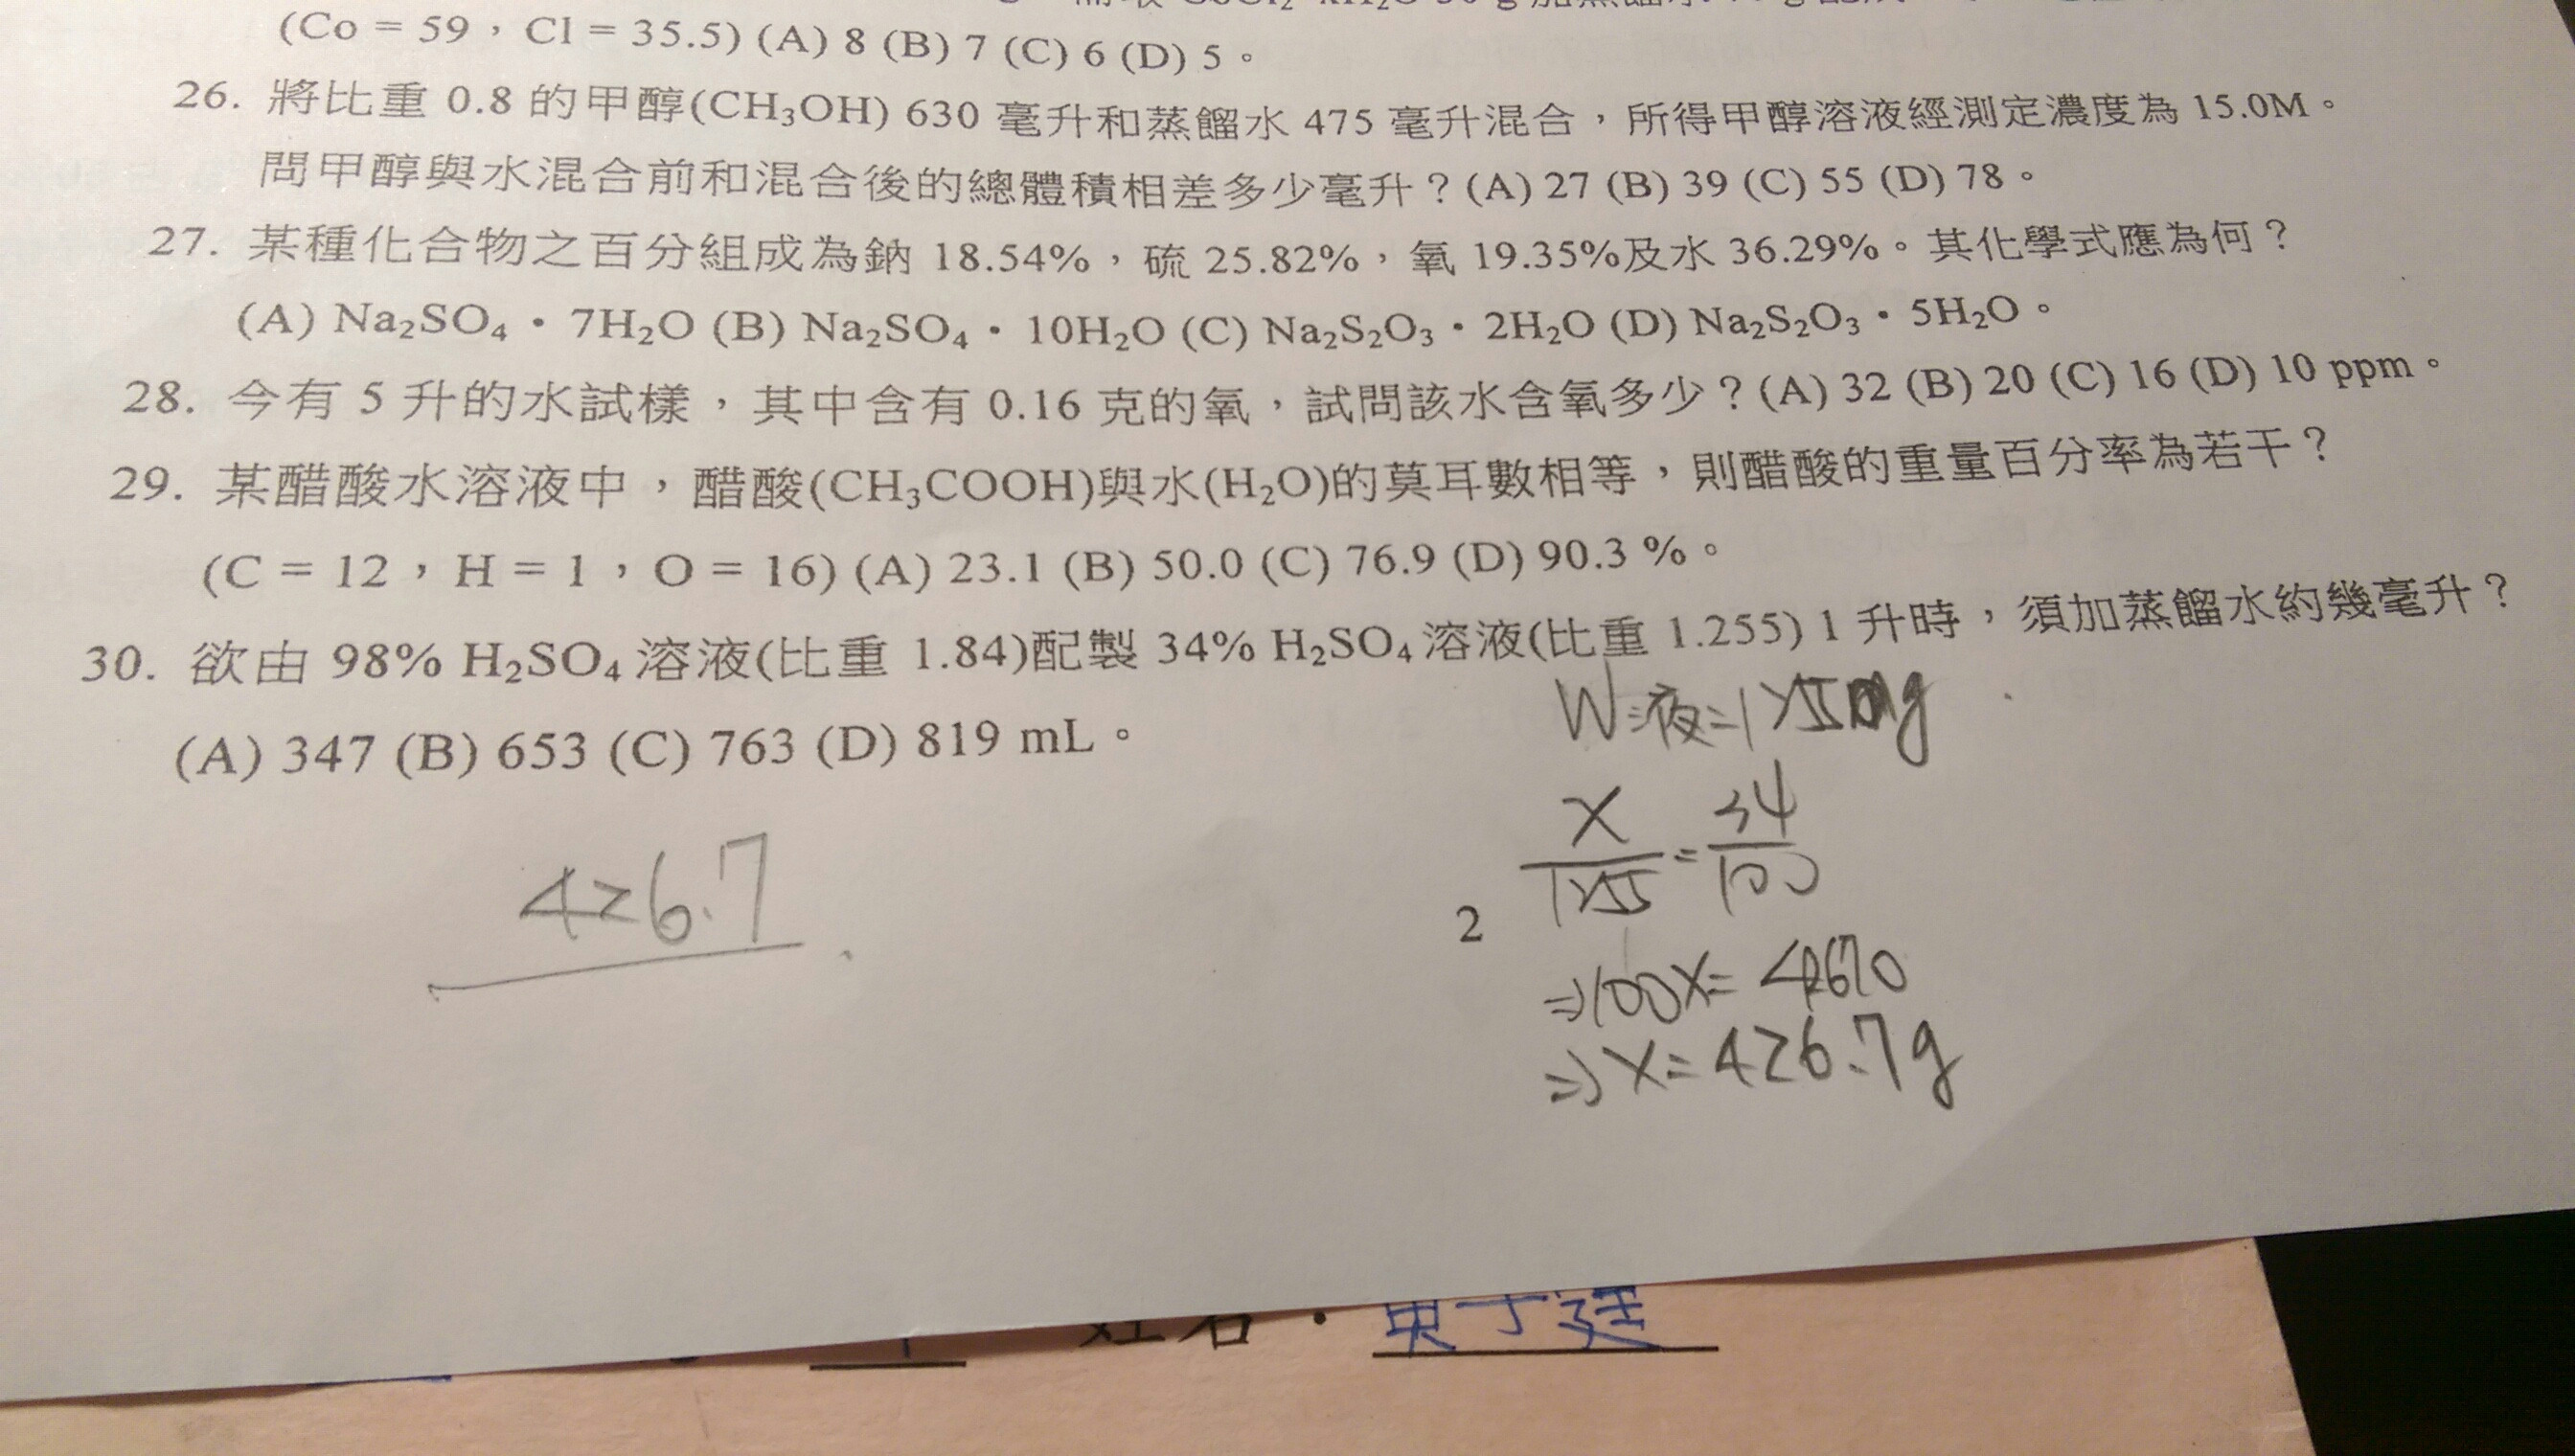 (Co = 59，Cl = 35.5) (A) 8 (B) 7 (C) 6 (D) 5。
26. 將比重 0.8 的甲醇(CH₃OH) 630 毫升和蒸餾水 475 毫升混合，所得甲醇溶液經測定濃度為 15.0M。
問甲醇與水混合前和混合後的總體積相差多少毫升？(A) 27 (B) 39 (C) 55 (D) 78。
27. 某種化合物之百分組成為鈉 18.54%，硫 25.82%，氧 19.35%及水 36.29%。其化學式應為何？
(A) Na₂SO₄・7H₂O (B) Na₂SO₄・10H₂O (C) Na₂S₂O₃・2H₂O (D) Na₂S₂O₃・5H₂O。
28. 今有 5 升的水試樣，其中含有 0.16 克的氧，試問該水含氧多少？(A) 32 (B) 20 (C) 16 (D) 10 ppm。
29. 某醋酸水溶液中，醋酸(CH₃COOH)與水(H₂O)的莫耳數相等，則醋酸的重量百分率為若干？
(C = 12，H = 1，O = 16) (A) 23.1 (B) 50.0 (C) 76.9 (D) 90.3 %。
30. 欲由 98% H₂SO₄ 溶液(比重 1.84)配製 34% H₂SO₄ 溶液(比重 1.255) 1 升時，須加蒸餾水約幾毫升？
(A) 347 (B) 653 (C) 763 (D) 819 mL。
W液=1255g
X/1255 = 34/100
⇒100X=42670
⇒X=426.7g
426.7
2
姓名：